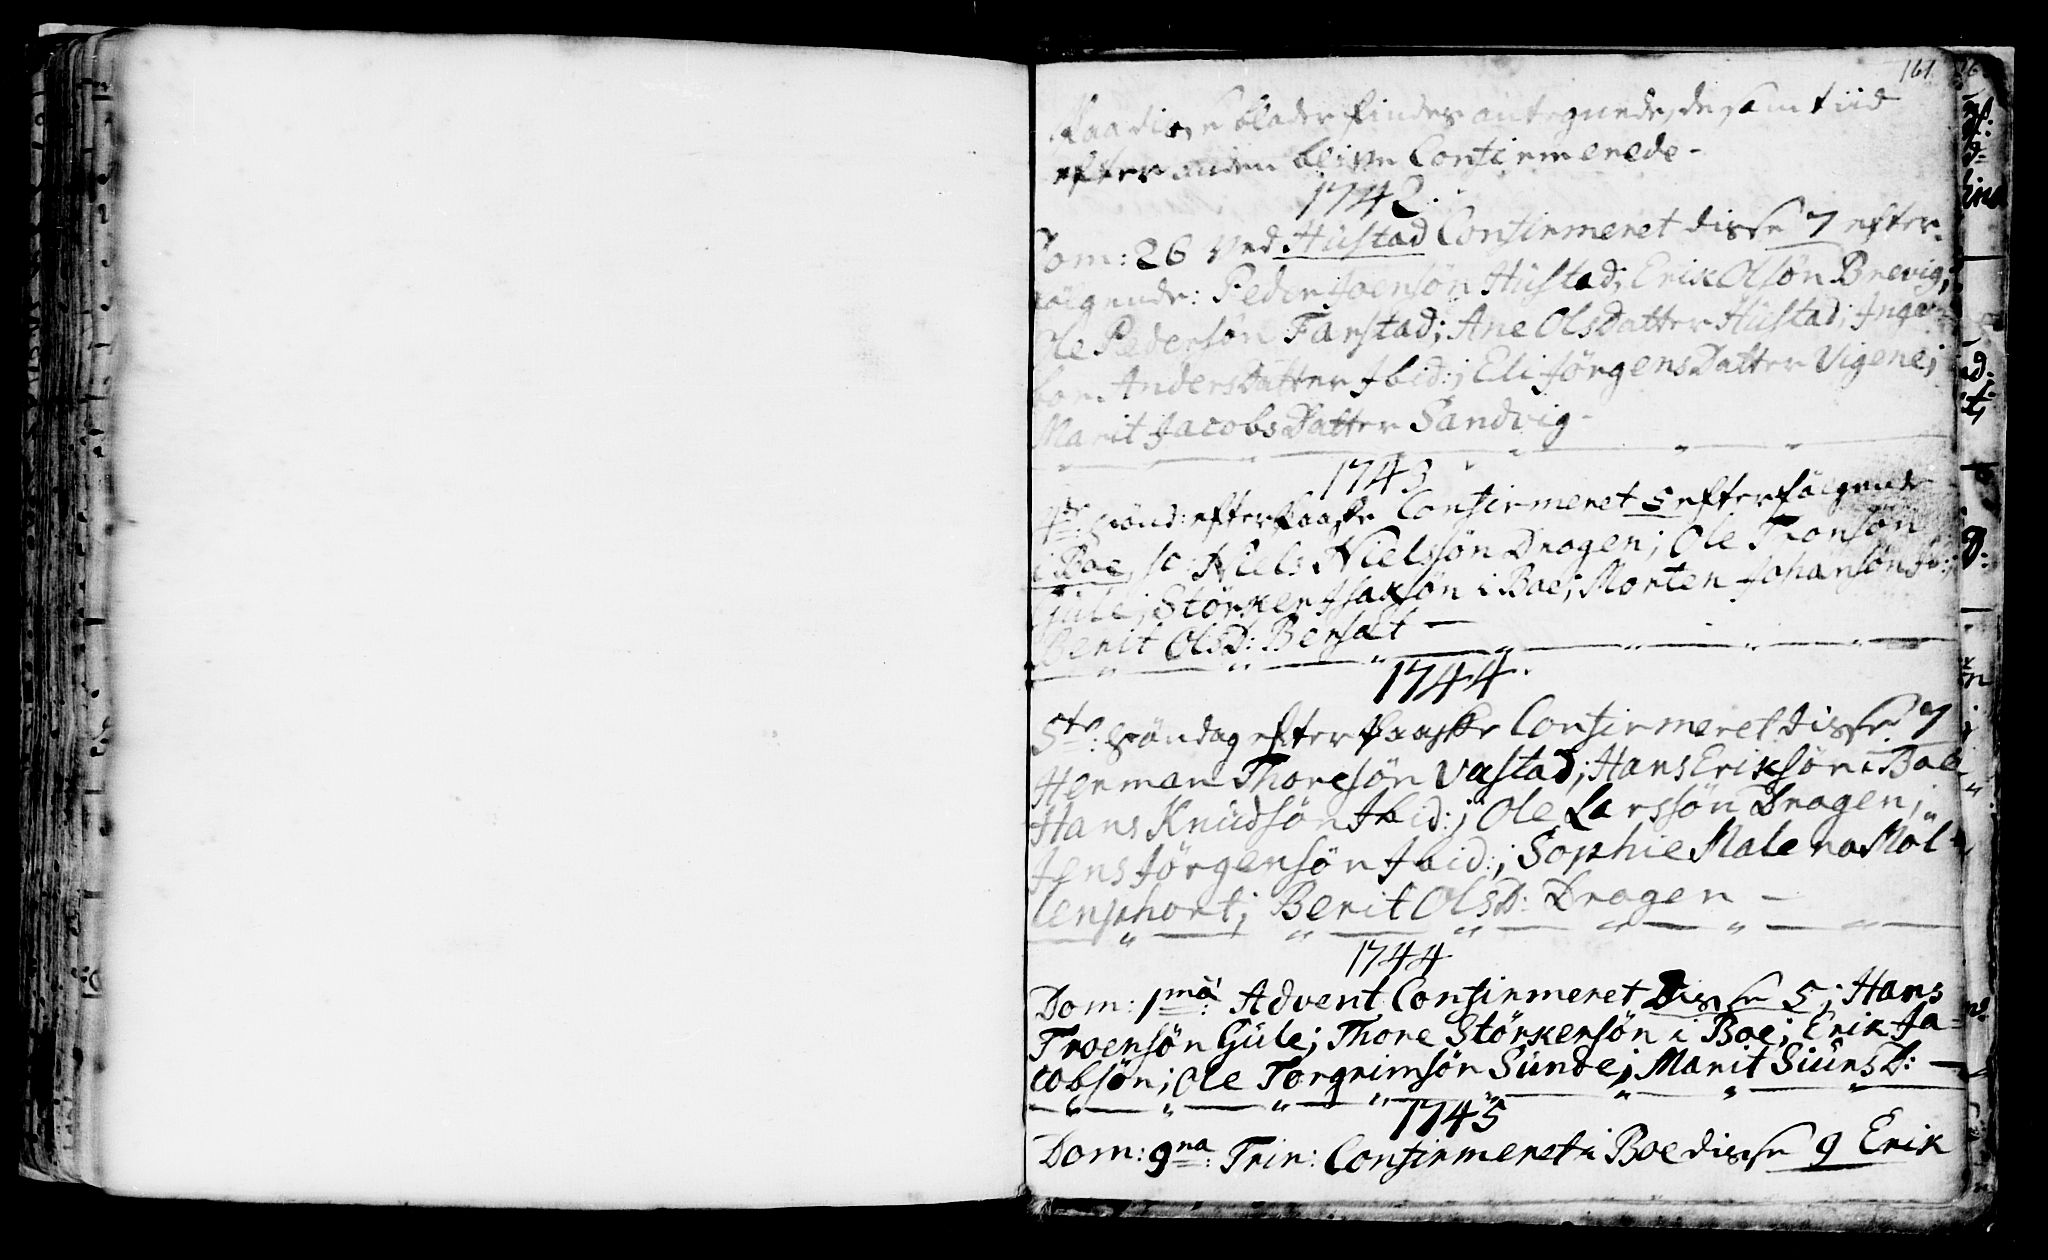 161.
Paa disse blader findes antegnede, de som tiid
efter anden blifve Confirmerede-
1742.
Dom: 26 ved Hüstad Confirmeret disse 7 efter-
følgende: Peder Joensøn Hüstad; Erik Olsøn Brevig;
Ole Pedersøn Farstad; Ane OlsDatter Hüstad; Inge-
bor AndersDatter Ibid:; Eli JørgensDatter Vigene;
Marit JacobsDatter Sandvig-
1743
4de Sønd: efter Paaske Confirmeret 5 efterfølgende
i Boe, sc: Niels Nielssøn Dragen; Ole Tronsøn
Güle; Störker Isaksøn i Boe; Morten Johansøn
Berit OlsD: Bersæt —
1744.
5te: Søndag efter Paaske Confirmeret disse 7
Herman Thoresøn Vastad; Hans Eriksøn i Boe
Hans Knüdsøn Ibid:; Ole Larssøn Dragen;
Jens Jörgensøn Ibid:; Sophie Malena Möl-
lenphort; Berit OlsD: Dragen —
1744
Dom: 1ma: Advent Confirmeret Disse 5; Hans
Troensøn Güle; Thore Störkersøn i Boe; Erik Ja-
cobsøn; Ole Torgrimsøn Sünde; Marit SiürsD: —
1745
Dom: 9na: Trin: Confirmeret i Boe disse 9 Erik